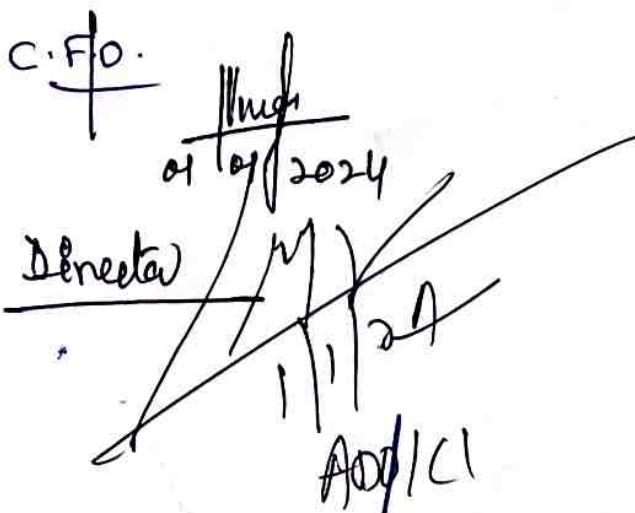 C.F.O.
01/01/2024
Director
1/1/24
ADD/CI